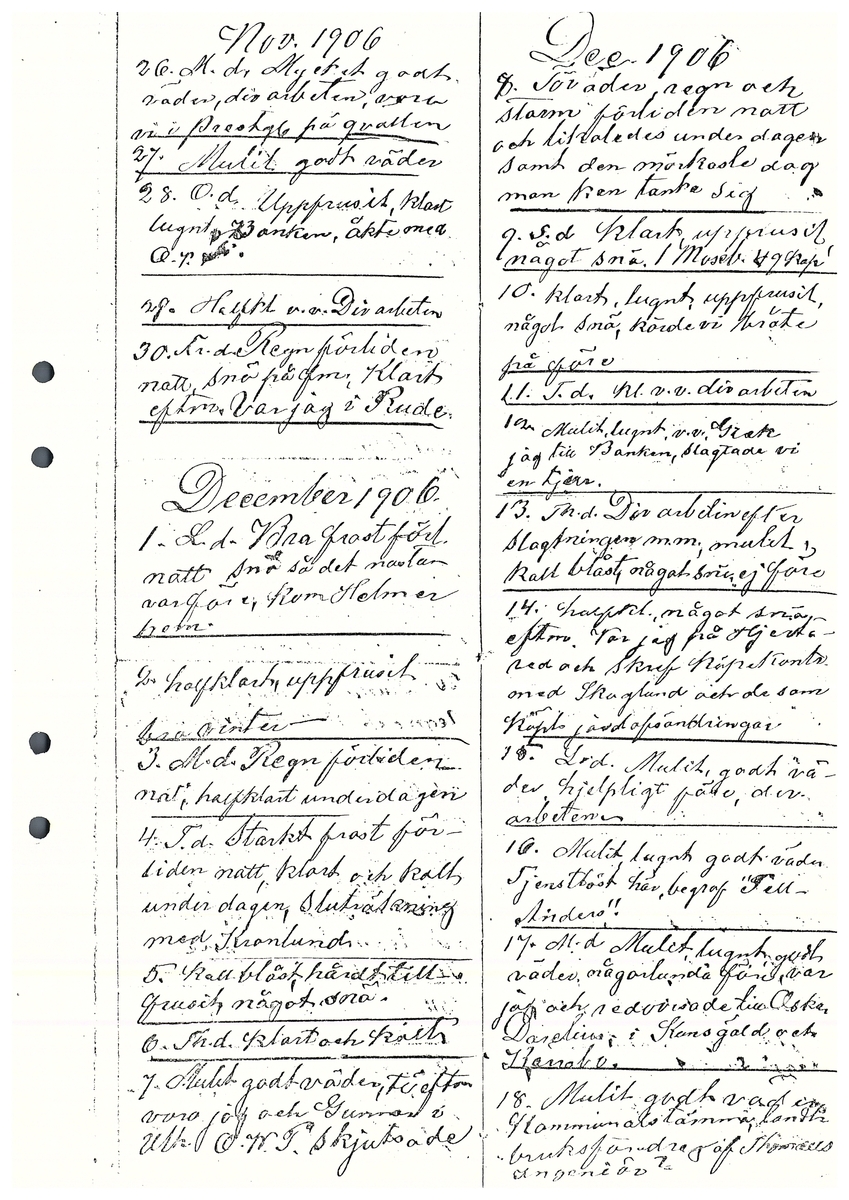 Nov. 1906
26. M. d. Mycket godt
väder, div arbeten, voro
vi i Prestg på qvällen
27. Mulit godt väder
28. O. d. Uppfrusit, klart
lugnt, Banken, åkte med
O. P.
29. Halfkl v. v. Div arbeten
30. Fr. d. Regn förliden
natt, snö på fm, Klart
eftm. Var jag i Rude.
December 1906.
1. L. d. Bra frost förl.
natt snö så det nästan
var före, kom Helmer
hem.
2. halfklart, uppfrusit
bra vinter
3. M. d. Regn förliden
natt, halfklart under dagen
4. T. d. Starkt frost för-
liden natt, klart och kallt
under dagen, Sluträkning
med Kronlund
5. Kall blåst, hårdt till-
frusit, något snö.
6. Th. d. klart och kallt
7. Mulit godt väder, tö eftm
voro jag och Gunnar i
Ulh O. W. P. Skjutsade
Dec. 1906
8. Töväder, regn och
storm förliden natt
och likaledes under dagen
samt den mörkaste dag
man kan tänka sig
9. S. d Klart, uppfrusit
något snö. 1 Moseb. 49 Kap
10. klart, lugnt, uppfrusit,
något snö, körde vi bråte
på före
11. T. d. Kl. v. v. div arbeten
12. Mulit, lugnt, v. v. Gick
jag till Banken, slagtade vi
en tjur.
13. Th. d. Div arbeten efter
slagtningen m. m., mulit,
kall blåst, något snö, ej före
14. halfkl., något snö,
eftm. Var jag på Hjerta-
red och skref Köpekontr.
med Skoglund och de som
köpt jordafsöndringar
15. L. d. Mulit, godt vä-
der, hjelpligt före, div.
arbeten
16. Mulit, lugnt godt väder
Tjenstlöst här, begrof "Fell-
Anders".
17. M. d Mulit, lugnt, godt
väder, någorlunda före, var
jag och redovisade till Oskar
Darelius, i Konsgäld och
18. Mulit godt väder
Kommunalstämma, landt-
bruksföredrag af